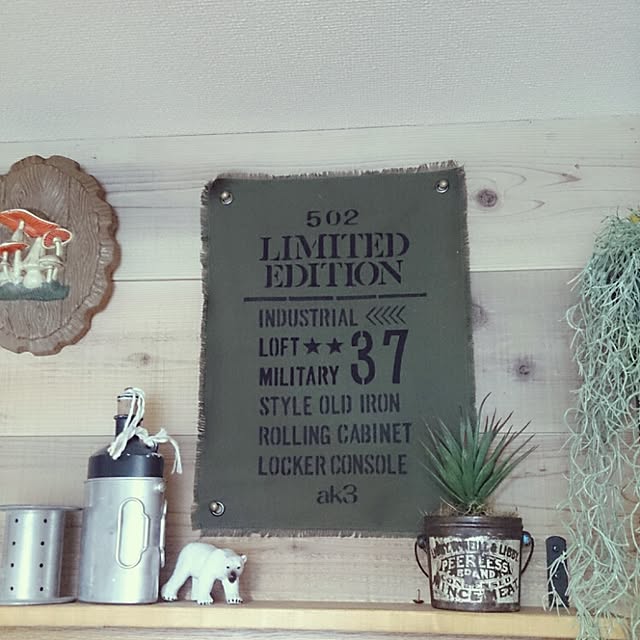 502
LIMITED
EDITION
INDUSTRIAL <<<<<
LOFT ★★ 37
MILITARY
STYLE OLD IRON
ROLLING CABINET
LOCKER CONSOLE
ak3
PEERLESS
BRAND